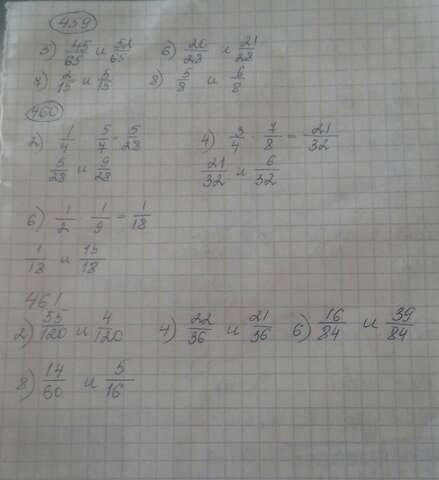 459
5) 45/65 и 52/65 6) 20/28 и 21/28
7) 2/15 и 5/15 8) 5/8 и 6/8
460
2) 1/4 5/7 = 5/28 4) 3/4 · 7/8 = 21/32
5/28 и 9/28 21/32 и 6/32
6) 1/2 1/9 = 1/18
1/18 и 15/18
461
2) 55/120 и 4/120 4) 22/36 и 21/36 6) 16/84 и 39/84
8) 14/60 и 5/16